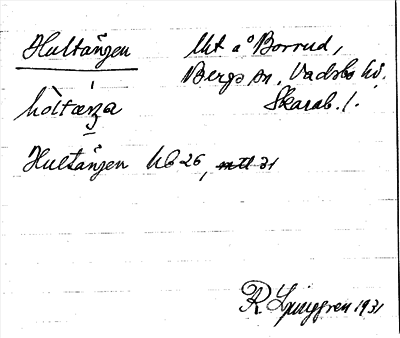 Hultängen
Lht a° Borrud,
Bergs sn, Vadsbo hd.
Skarab. l.
hòltæŋa
Hultängen hb 26, mtl 31
R Ljunggren 1931